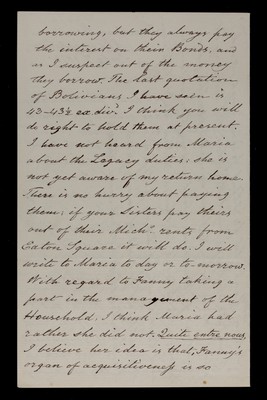 borrowing, but they always pay
the interest on their Bonds, and
as I suspect out of the money
they borrow. The last quotation
of Bolivians I have seen is
43-43½ ex divd. I think you will
do right to hold them at present.
I have not heard from Maria
about the Legacy duties: she is
not yet aware of my return home.
There is no hurry about paying
them: if your Sisters pay theirs
out of their Michs. rents from
Eaton Square it will do: I will
write to Maria to day or to-morrow.
With regard to Fanny taking a
part in the management of the
Household, I think Maria had
rather she did not. Quite entre nous,
I believe her idea is that, Fanny's
organ of acquisitiveness is so